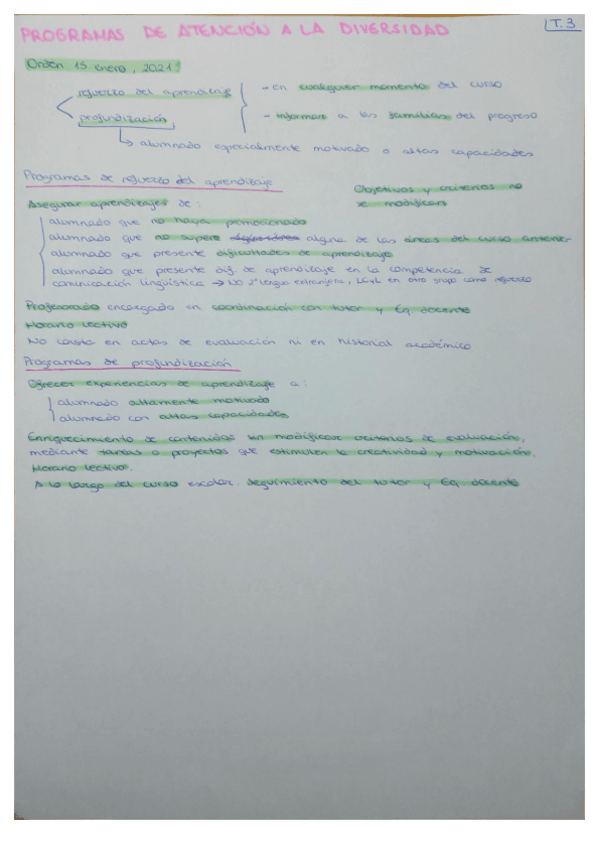 T.3
PROGRAMAS DE ATENCIÓN A LA DIVERSIDAD
Orden 15 enero, 2021:
refuerzo del aprendizaje
- en cualquier momento del curso
profundización
- informar a las familias del progreso
↳ alumnado especialmente motivado o altas capacidades
Programas de refuerzo del aprendizaje
Objetivos y criterios no
se modifican
Asegurar aprendizajes de:
alumnado que no haya promocionado
alumnado que no supere alguna de las áreas del curso anterior
alumnado que presente dificultades de aprendizaje
alumnado que presente dif. de aprendizaje en la competencia de
comunicación lingüística → NO 2ª lengua extranjera, en otro grupo como refuerzo
Profesorado encargado en coordinación con tutor y Eq. docente
Horario lectivo
No consta en actas de evaluación ni en historial académico
Programas de profundización
Ofrecer experiencias de aprendizaje a:
alumnado altamente motivado
alumnado con altas capacidades
Enriquecimiento de contenidos sin modificar criterios de evaluación,
mediante tareas o proyectos que estimulen la creatividad y motivación.
Horario lectivo.
A lo largo del curso escolar. Seguimiento del tutor y Eq. docente